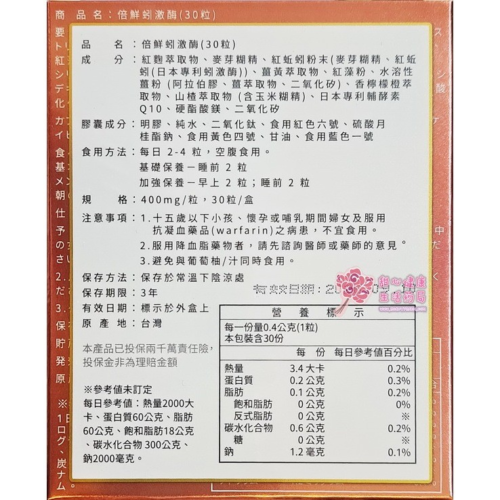 商 品 名：倍鮮蚓激酶(30粒)
品　　名：倍鮮蚓激酶(30粒)
成　　分：紅麴萃取物、麥芽糊精、紅蚯蚓粉末(麥芽糊精、紅蚯
蚓(日本專利蚓激酶))、薑黃萃取物、紅藻粉、水溶性
薑粉 (阿拉伯膠、薑萃取物、二氧化矽)、香檸檬橙萃
取物、山楂萃取物 (含玉米糊精)、日本專利輔酵素
Q10、硬酯酸鎂、二氧化矽
膠囊成分：明膠、純水、二氧化鈦、食用紅色六號、硫酸月
桂酯鈉、食用黃色四號、甘油、食用藍色一號
食用方法：每日 2-4 粒，空腹食用。
基礎保養－睡前 2 粒
加強保養－早上 2 粒；睡前 2 粒
規　　格：400mg/粒，30粒/盒
注意事項：1.十五歲以下小孩、懷孕或哺乳期間婦女及服用
抗凝血藥品(warfarin)之病患，不宜食用。
2.服用降血脂藥物者，請先諮詢醫師或藥師的意見。
3.避免與葡萄柚/汁同時食用。
保存方法：保存於常溫下陰涼處
保存期限：3年
有效日期：標示於外盒上
原 產 地：台灣
本產品已投保兩千萬責任險，
投保金非為理賠金額
※參考值未訂定
每日參考值：熱量2000大
卡、蛋白質60公克、脂肪
60公克、飽和脂肪18公克
、碳水化合物 300公克、
鈉2000毫克。
有效日期：20
甜心康康
生活藥局
營　養　標　示
每一份量0.4公克(1粒)
本包裝含30份
每　份　每日參考值百分比
熱量　3.4 大卡　0.2%
蛋白質　0.2 公克　0.3%
脂肪　0.1 公克　0.2%
飽和脂肪　0 公克　0%
反式脂肪　0 公克　※
碳水化合物　0.6 公克　0.2%
糖　0 公克　※
鈉　1.2 毫克　0.1%